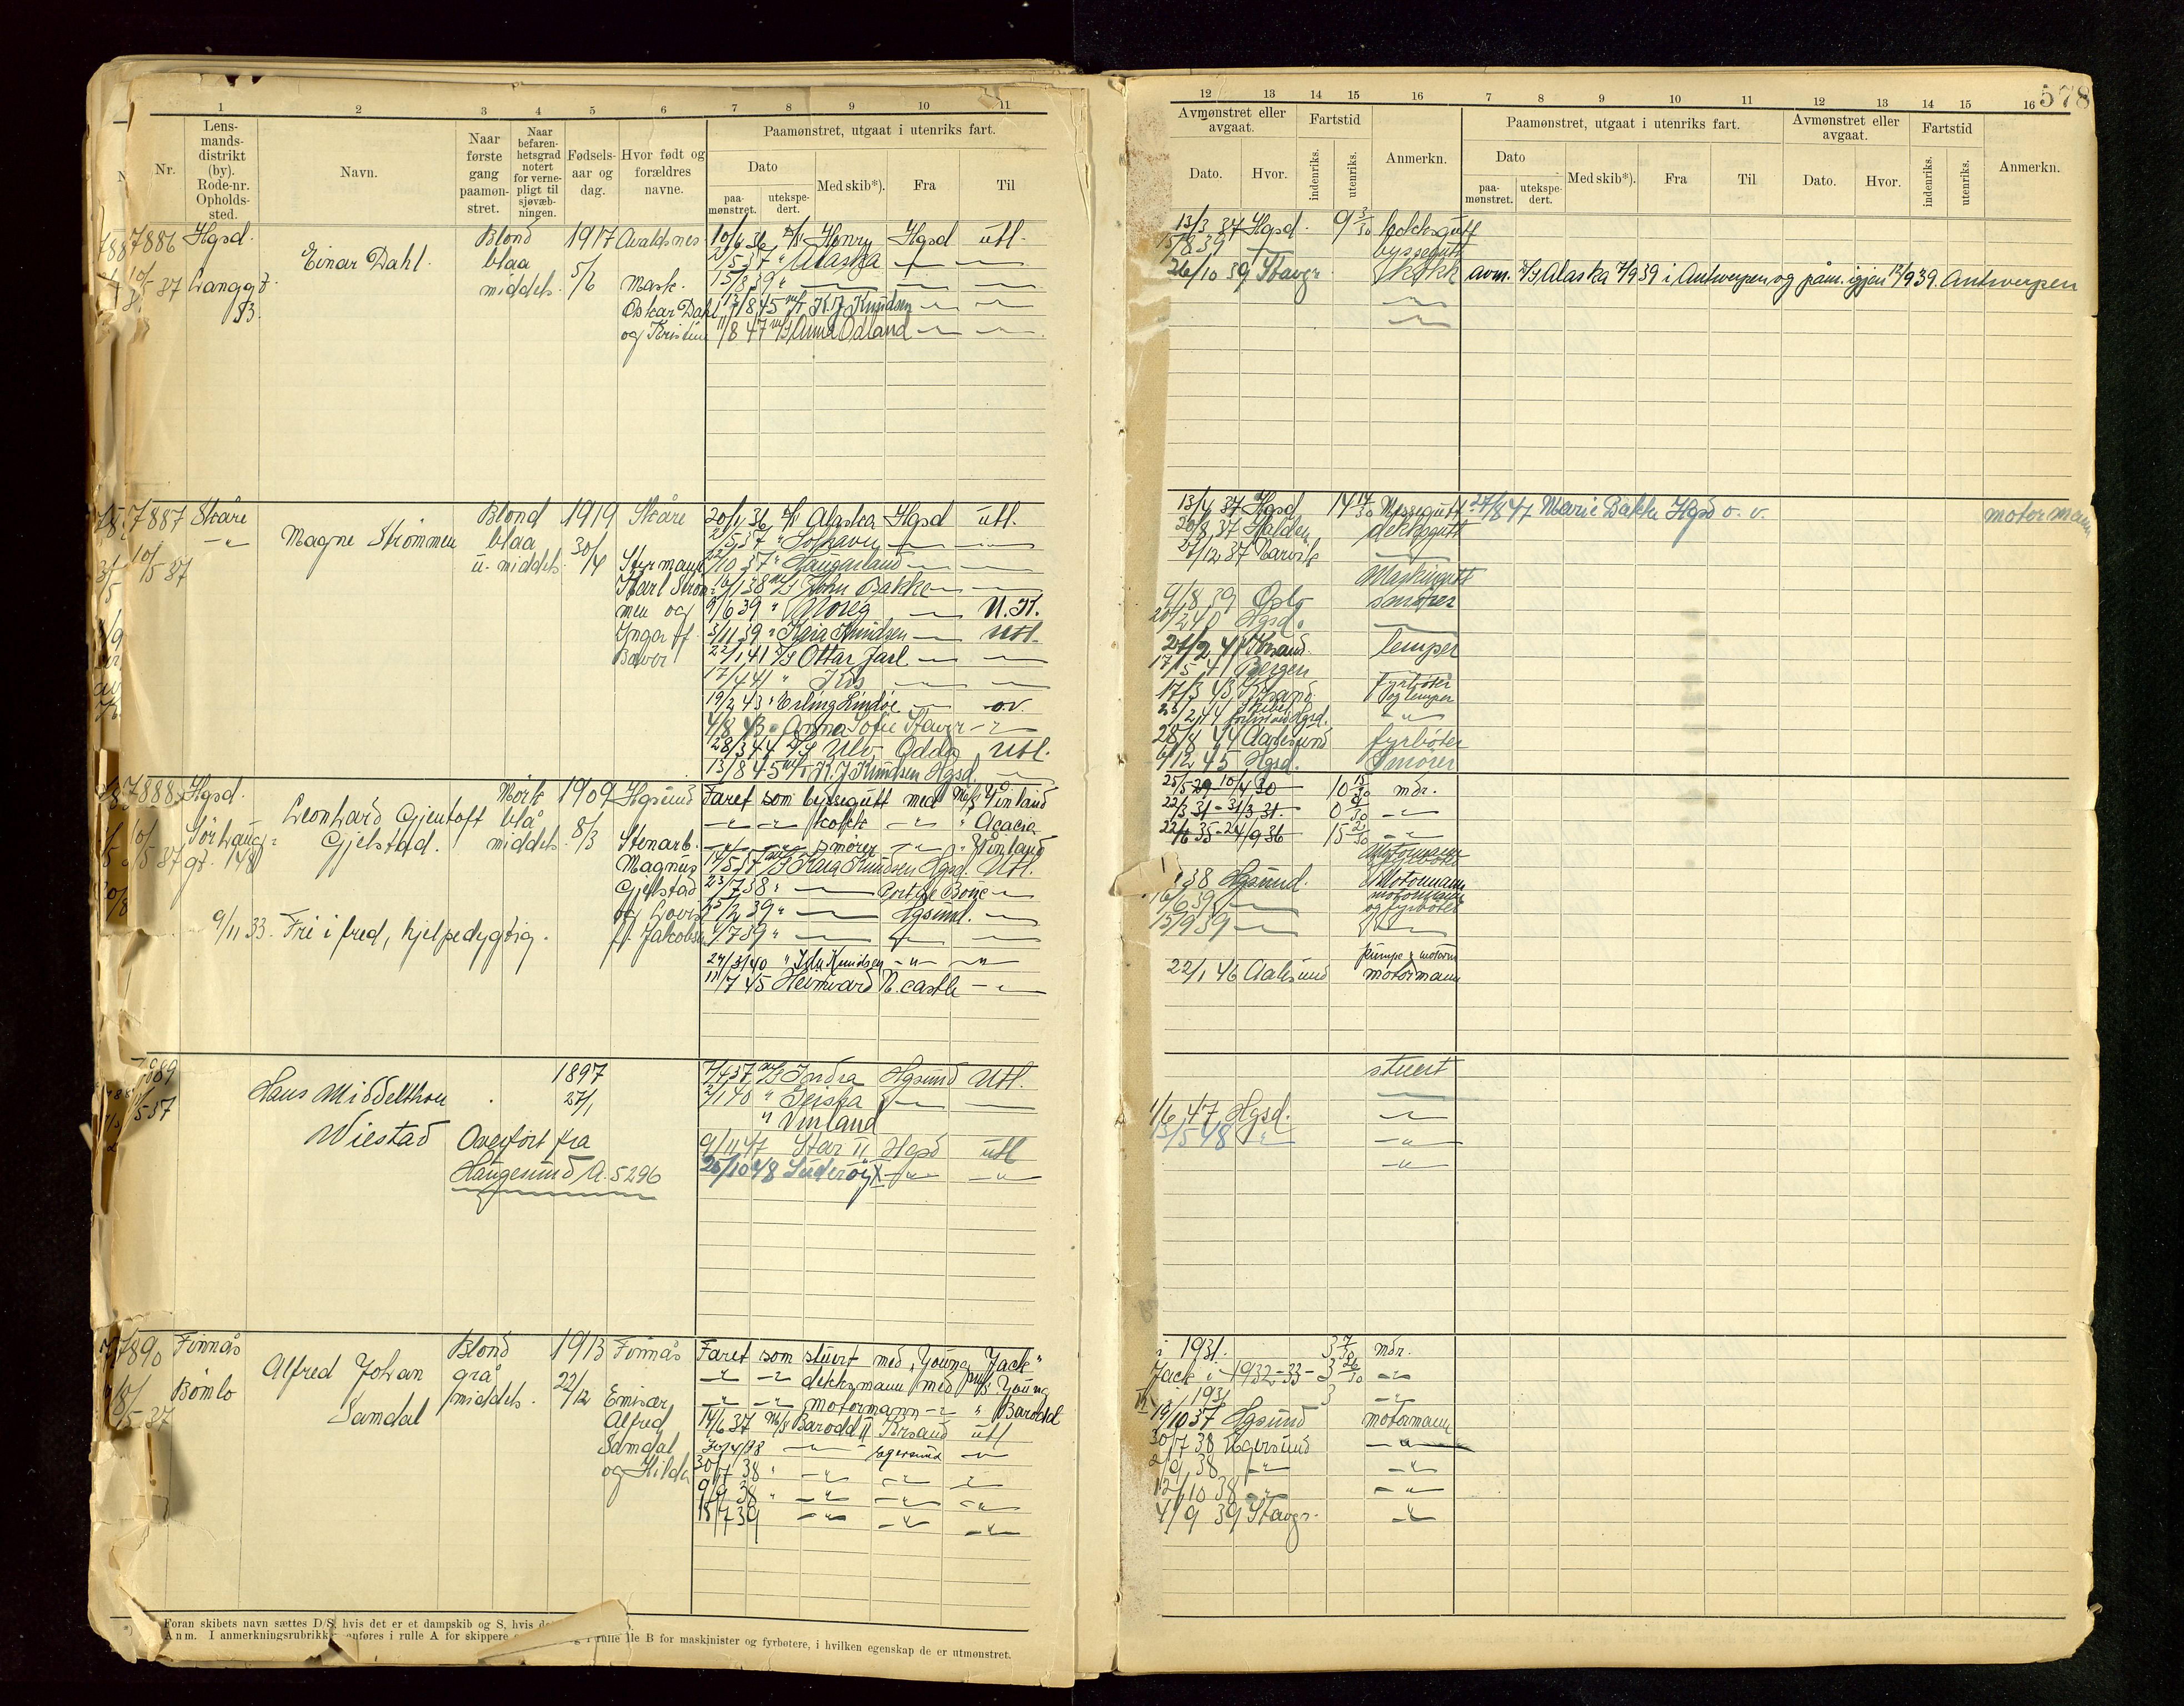 578
1 2 3 4 5 6 7 8 9 10 11
Nr.
Lens-
mands-
distrikt
(by).
Rode-nr.
Opholds-
sted.
Navn.
Naar
første
gang
paamøn-
stret.
Naar
befaren-
hetsgrad
notert
for verne-
pligt til
sjøvæb-
ningen.
Fødsels-
aar og
dag.
Hvor født og
forældres
navne.
Paamønstret, utgaat i utenriks fart.
Dato
paa-
mønstret.
utekspe-
dert.
Med skib*).
Fra
Til
12 13 14 15 16 7 8 9 10 11 12 13 14 15 16
Avmønstret eller
avgaat.
Dato.
Hvor.
Fartstid
indenriks.
utenriks.
Anmerkn.
Paamønstret, utgaat i utenriks fart.
Dato
paa-
mønstret.
utekspe-
dert.
Med skib*).
Fra
Til
Avmønstret eller
avgaat.
Dato.
Hvor.
Fartstid
indenriks.
utenriks.
Anmerkn.
7886 Hgsd.
Einar Dahl.
Blond
blaa
middels.
1917
5/6
Avaldsnes
Mask.
Oskar Dahl
og Kristine
10/6 36 Henry Hgsd utl.
2/5 37 " Alaska
15/8 39 "
13/8 45 m/t K. J. Knudsen
11/8 47 m/s Anna Odland
13/3 37 Hgsd. 9 3/30 kokksgutt
15/8 39 byssegutt
26/10 39 Stavgr. kokk avm. D/S Alaska 7/9 39 i Antwerpen og påm. igjen 12/9 39. Antwerpen
7887 Skåre
10/5 37
Magne Strømmen
Blond
blaa
u. middels.
1919
30/4
Skåre
Styrmann
Karl Strøm-
men og
Inga f.
20/1 36 Alaska Hgsd utl.
2/5 37 " Solhavn
22/10 37 " Haugarland
16/1 38 m/s John Bakke
9/6 39 " Noreg U. K.
3/11 39 " Kaia Knudsen utl.
22/1 41 D/S Ottar Jarl
17/4 41 " Iris
19/2 43 " Erling Lindøe o.v.
4/8 43 " Anna Sofie Stavgr
28/3 44 D/S Ulv Odda Utl.
13/8 45 m/t K. J. Knudsen Hgsd.
13/4 37 Hgsd 14 14/30 Messegutt 27/8 47 Marie Bakke Hgsd o. v. motormann
20/8 37 Halden dekksgutt
27/12 37 Narvik
Maskingutt
9/8 39 Oslo smører
20/2 40 Hgsd.
21/2 41 Krsand. lemper
17/5 41 Bergen
17/3 43 Krsand. Fyrbøter
og lemper
28/8 44 Aalesund fyrbøter
9/12 45 Hgsd. Smører
7888 Hgsd.
10/5 37 Sør Haug-
gt. 148
Leonhard Gjentoft
Gjelstad.
Mørk
blå
middels.
1909
8/3
Hgsund
Stenarb.
Magnus
Gjelstad
og Lovise
f. Jakobsen
Faret som byssegutt med M/S Vinland
kokk " Acacia
smører " Vinland
14/5 37 m/s Kaia Knudsen Hgsd. Utl.
23/7 38 " Port de Bouc
25/2 39 " Hgsund.
1/7 39 "
24/3 40 " Ida Knudsen
11/7 45 Heimvard N. castle
9/11 33. Fri i fred, hjelpedygtig.
25/5 29 - 10/4 30 10 15/30 mdr.
22/3 31 - 31/3 31. 0 9/30
22/6 35 - 24/9 36 15 2/30
Motormann
fyrbøter
38 Hgsund. Motormann
16/6 39 motormann
og fyrbøter
15/9 39
pumpe & motorm
22/1 46 Aalesund motormann
7889
Hans Middelthon
Wiestad
1897
27/1
Overført fra
Haugesund A. 5296
7/4 37 m/s Indra Hgsund Utl.
2/1 40 " Geisha
" Vinland
9/11 47 Star II Hgsd utl
25/10 48 Suderøy X
stuert
1/6 47 Hgsd.
15/5 48
7890 Finnås
10/5 37 Bømlo
Alfred Johan
Samdal
Blond
grå
middels.
1913
22/12
Finnås
Emisær
Alfred
Samdal
og Hilda
Faret som stuert med "Young Jack"
dekksmann med Young
motormann " Barodd
14/6 37 M/S Barodd II Krsand utl
30/4 38 Egersund
30/7 38 "
9/9 38 "
18/7 39
i 1931. 3 7/30 mdr.
Jack i 1932-33 - 3 26/30
i 1931 3
19/10 37 Hgsund motormann
30/7 38 Egersund
2/9 38
12/10 38
4/9 39 Stavgr.
Foran skibets navn sættes D/S, hvis det er et dampskib og S, hvis
Anm. I anmerkningsrubrikk anføres i rulle A for skippere og i rulle B for maskinister og fyrbøtere, i hvilken egenskap de er utmønstret.